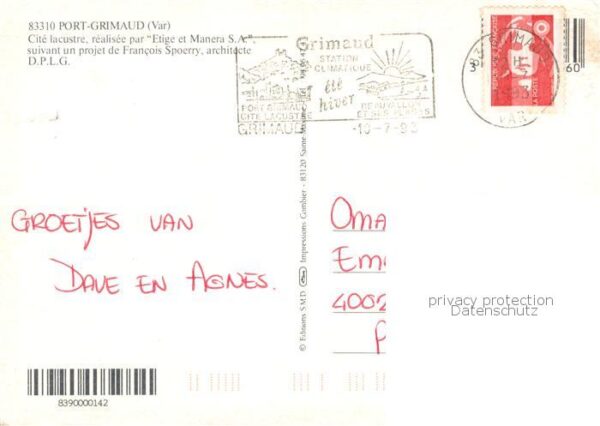 83310 PORT-GRIMAUD (Var)
Cité lacustre, réalisée par "Etige et Manera S.A.",
suivant un projet de François Spoerry, architecte
D.P.L.G.
Grimaud
STATION
CLIMATIQUE
été
hiver
PORT GRIMAUD
CITE LACUSTRE
GRIMAUD
BEAUVALLON
-10-7-93
83 GRIMAUD
1993
VAR
LA POSTE
3
60
© Editions S.M.D. Impressions Combier - 83120 Sainte-Maxime
GROETJES VAN
DAVE EN AGNES.
OMA
EM
4002
P
privacy protection
Datenschutz
8390000142